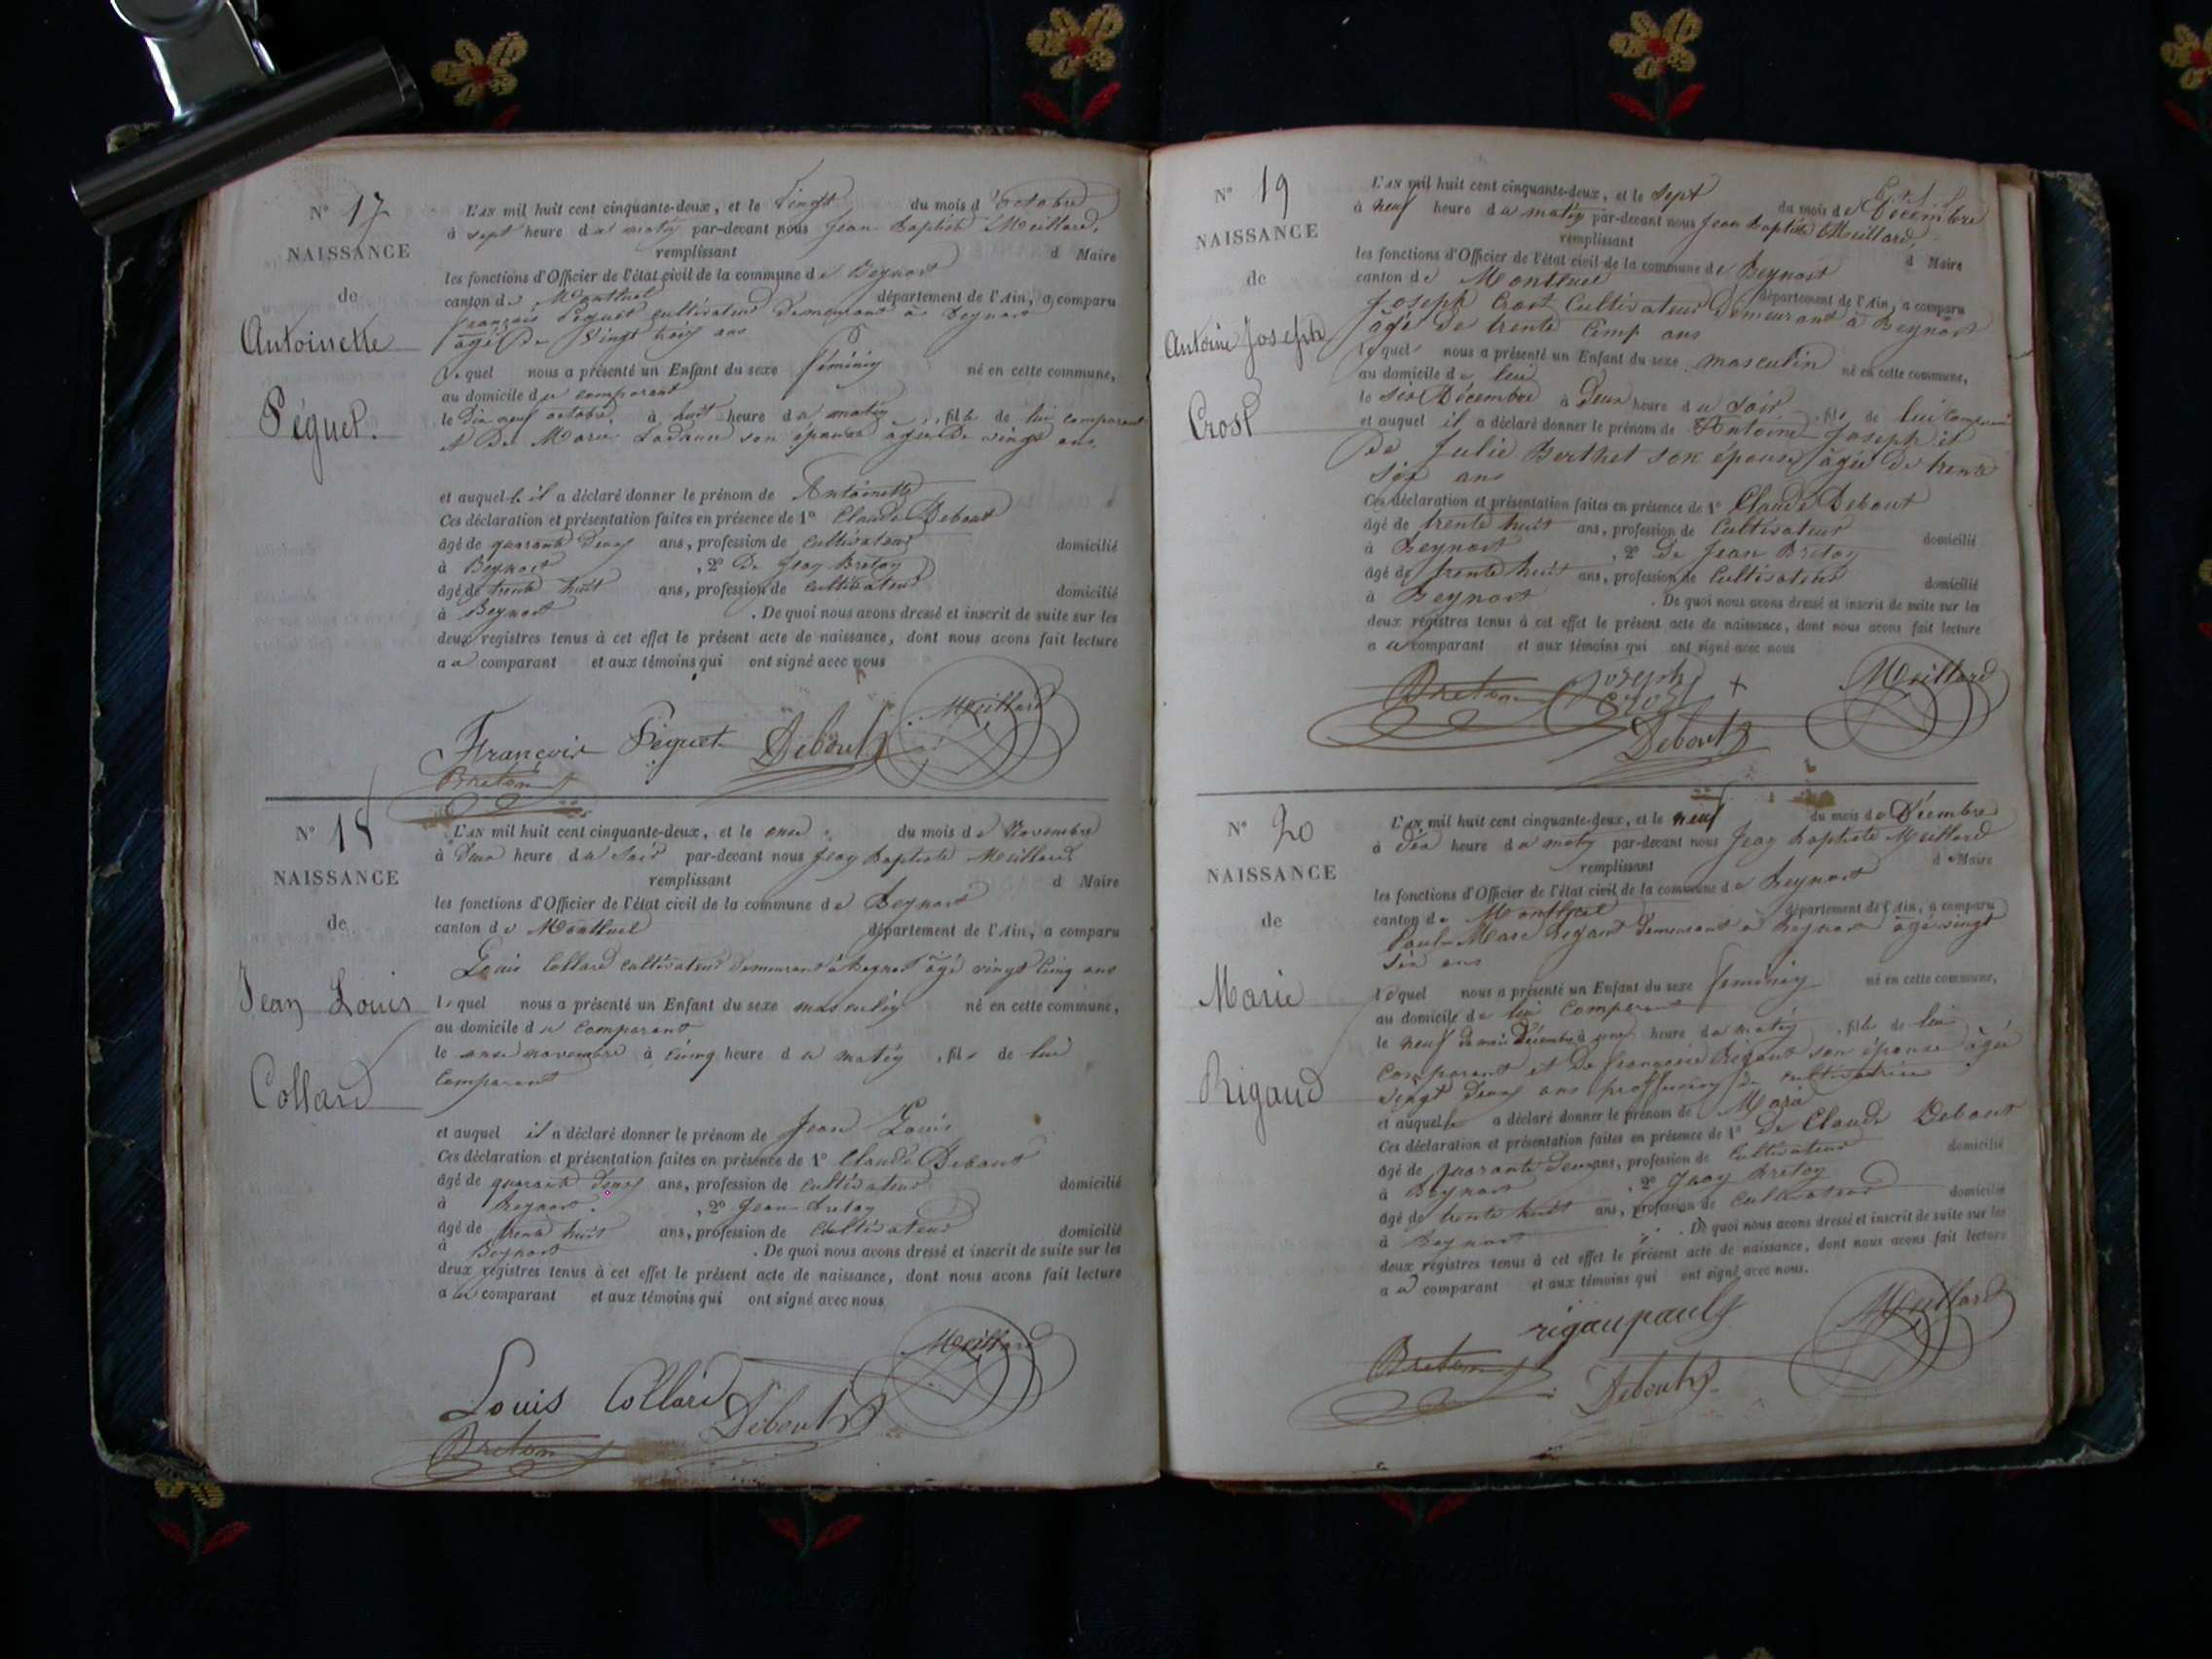 N° 17
NAISSANCE
de
Antoinette
Péguet.
L'AN mil huit cent cinquante-deux, et le vingt du mois d'octobre
à sept heure du matin par-devant nous Jean Baptiste Meillard,
remplissant d Maire
les fonctions d'Officier de l'état civil de la commune de Beynost
canton de Montluel département de l'Ain, a comparu
françois Péguet cultivateur demeurant à Beynost
âgé de vingt trois ans
lequel nous a présenté un Enfant du sexe féminin né en cette commune,
au domicile du comparant
le dix neuf octobre, à huit heure du matin, fille de lui comparant
et de Marie son épouse âgée de vingt ans.
et auquelle il a déclaré donner le prénom de Antoinette
Ces déclaration et présentation faites en présence de 1° Claude Debout
âgé de quarante deux ans, profession de cultivateur domicilié
à Beynost, 2° De Jean Breton
âgé de trente huit ans, profession de cultivateur domicilié
à Beynost. De quoi nous avons dressé et inscrit de suite sur les
deux registres tenus à cet effet le présent acte de naissance, dont nous avons fait lecture
au comparant et aux témoins qui ont signé avec nous
François Péguet Debout Meillard
Breton
N° 18
NAISSANCE
de
Jean Louis
Collard
L'AN mil huit cent cinquante-deux, et le onze du mois de Novembre
à deux heure du soir par-devant nous Jean Baptiste Meillard
remplissant d Maire
les fonctions d'Officier de l'état civil de la commune de Beynost
canton de Montluel département de l'Ain, a comparu
Louis Collard cultivateur demeurant à Beynost âgé vingt cinq ans
lequel nous a présenté un Enfant du sexe masculin né en cette commune,
au domicile du comparant
le onze novembre à cinq heure du matin, fils de lui
comparant
et auquel il a déclaré donner le prénom de Jean Louis
Ces déclaration et présentation faites en présence de 1° Claude Debout
âgé de quarante deux ans, profession de cultivateur domicilié
à Beynost. , 2° Jean Breton
âgé de trente huit ans, profession de cultivateur domicilié
à Beynost. De quoi nous avons dressé et inscrit de suite sur les
deux registres tenus à cet effet le présent acte de naissance, dont nous avons fait lecture
au comparant et aux témoins qui ont signé avec nous
Louis Collard Debout Meillard
Breton
N° 19
NAISSANCE
de
Antoine Joseph
Crost
L'AN mil huit cent cinquante-deux, et le sept du mois de Décembre
à neuf heure du matin par-devant nous Jean Baptiste Meillard,
remplissant d Maire
les fonctions d'Officier de l'état civil de la commune de Beynost
canton de Montluel département de l'Ain, a comparu
Joseph Crost Cultivateur Demeurant à Beynost
âgé De trente Cinq ans
lequel nous a présenté un Enfant du sexe masculin né en cette commune,
au domicile de lui
le six Décembre à Deux heure du soir, fils de lui comparant
et auquel il a déclaré donner le prénom de Antoine Joseph et
De Julie Berthet son épouse âgée de trente
six ans
Ces déclaration et présentation faites en présence de 1° Claude Debout
âgé de trente huit ans, profession de Cultivateur domicilié
à Beynost, 2° De Jean Breton
âgé de trente huit ans, profession de Cultivateur domicilié
à Beynost. De quoi nous avons dressé et inscrit de suite sur les
deux registres tenus à cet effet le présent acte de naissance, dont nous avons fait lecture
au comparant et aux témoins qui ont signé avec nous
Breton Joseph Crost + Meillard
Debout
N° 20
NAISSANCE
de
Marie
Rigaud
L'AN mil huit cent cinquante-deux, et le neuf du mois de Décembre
à dix heure du matin par-devant nous Jean Baptiste Meillard
remplissant d Maire
les fonctions d'Officier de l'état civil de la commune de Beynost
canton de Montluel département de l'Ain, a comparu
Paul Marc Rigaud demeurant à Beynost âgé vingt
six ans
lequel nous a présenté un Enfant du sexe feminin né en cette commune,
au domicile de lui Comparant
le neuf du mois Décembre à une heure du matin, fille de lui
comparant et De françoise Rigaud son épouse âgée
vingt deux ans profession de cultivatrice
et auquelle a déclaré donner le prénom de Marie
Ces déclaration et présentation faites en présence de 1° De Claude Debout
âgé de quarante deux ans, profession de Cultivateur domicilié
à Beynost, 2° Jean Breton
âgé de trente huit ans, profession de cultivateur domicilié
à Beynost. De quoi nous avons dressé et inscrit de suite sur les
deux registres tenus à cet effet le présent acte de naissance, dont nous avons fait lecture
au comparant et aux témoins qui ont signé avec nous.
rigaupaul Meillard
Breton Debout